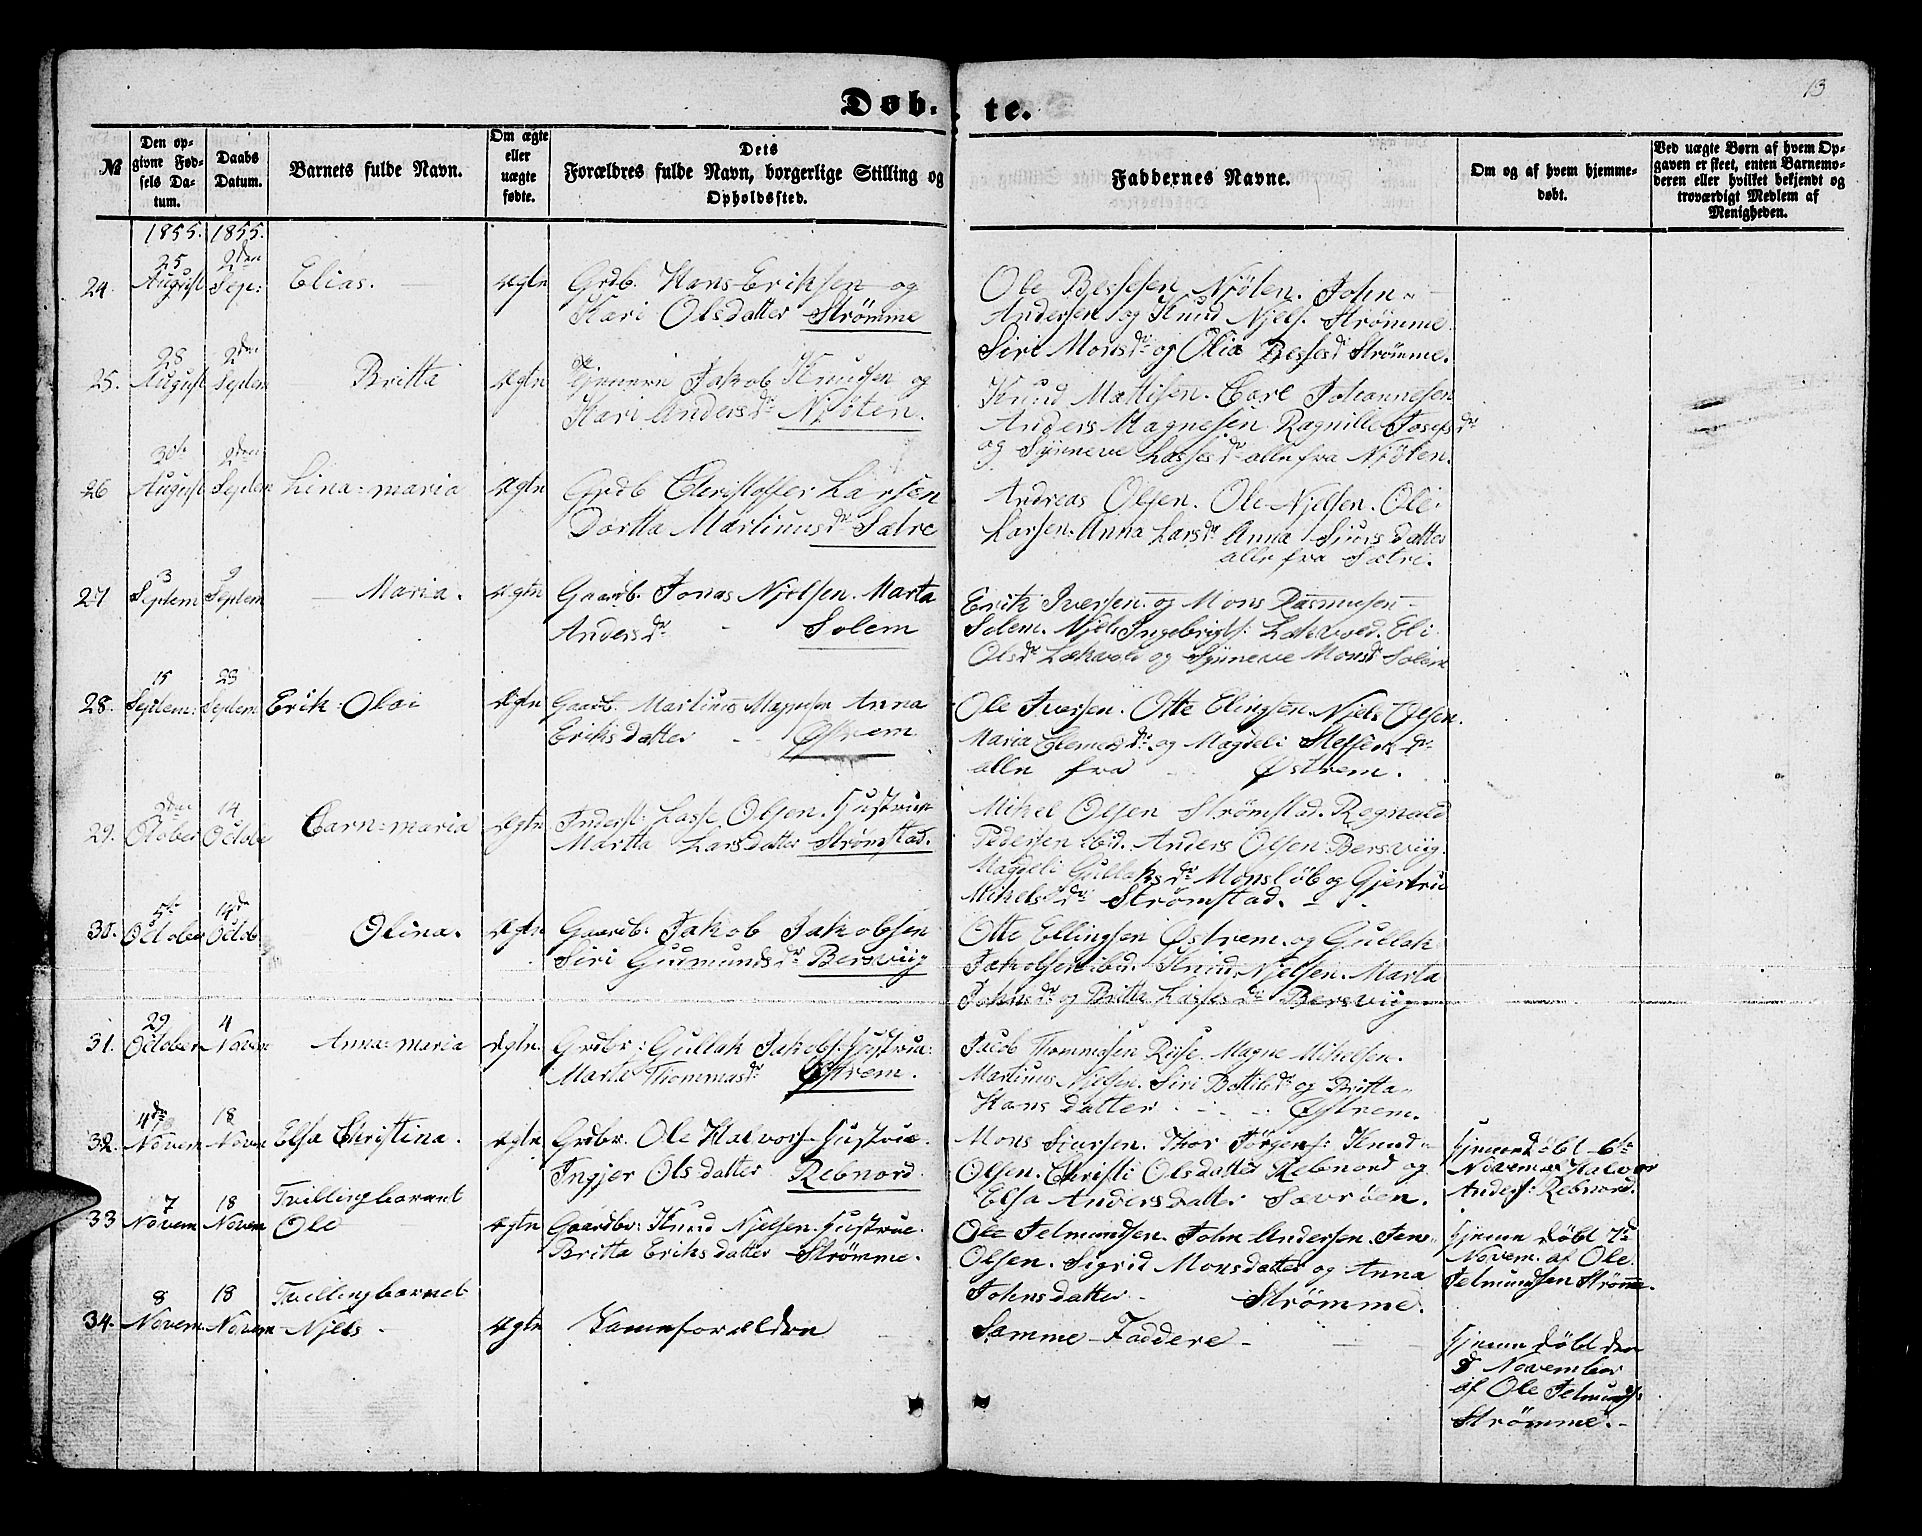 Døb-
te.
13
№
Den op-
givne Fød-
sels Da-
tum.
Daabs
Datum.
Barnets fulde Navn.
Om ægte
eller
uægte
fødte.
Dets
Forældres fulde Navn, borgerlige Stilling og
Opholdssted.
Faddernes Navne.
Om og af hvem hjemme-
døbt.
Ved uægte Børn af hvem Op-
gaven er skeet, enten Barnemo-
deren eller hvilket bekjendt og
troværdigt Medlem af
Menigheden.
1855. 1855.
25 2den
24. August Sep: Elias. ægte Grdb. Hans Eriksen og
Kari Olsdatter Strømme
Ole Bessesen Njøten. John
Andersen og Knud Njels. Strømme
Siri Monsdr og Olia Bessesd Strømme.
28 2den
25. August Septem Britta ægte Jakob Knudsen og
Kari Andersdr Njøten.
Knud Mattisen. Carl Johannesen
Anders Magnesen Ragnille Josefsdr
og Synneve Lassesdr alle fra Njøten.
30te 2den
26 August Septem Lina=maria ægte Grdb Christoffer Larsen
Dortta Martinusdr Sætre
Andreas Olsen. Ole Njelsen. Ole
Larsen. Anna Larsdr Anna Sjurs datter
alle fra Sætri.
3 9
27 Septem Septem Maria. ægte Gaardb. Jonas Njelsen. Marta
Andersdr Solem
Erik Iversen og Mons Rasmusen
Solem. Njels Ingebrigts: Lækvold. Eli
Olsdr Lækvold og Synneve Monsd Solem
15 23
28. Septem: Septem Erik: Olai ægte Gaardb. Martinus Magnesen Anna
Eriks datter Østrem
Ole Iversen. Otte Elingsen. Njels Olsen.
Maria Clemetsdr og Magdeli Steffensdr
alle fra Østrem.
2den 14
29. October Octobe Carn=maria ægte Inderst: Lasse Olsen. Hustrue
Martta Larsdatter Strømstad.
Mikel Olsen Strømstad. Rognald
Pedersen ibid. Anders Olsen Bersviig.
Magdeli Gullaksdr Monsløb og Gjertru
Mikelsdr Strømstad.
5te 14de
30. October Octob Olina. ægte Gaardb. Jakob Jakobsen
Siri Gudmundsdr Bersviig
Otte Ellingsen Østrem. og Gullak
Jakobsen ibid. Knud Njelsen. Marta
Johnsdr og Britta Lassesdr Bersviig
29 4
31. October Novem Anna=maria ægte. Grdbr: Gullak Jakobs: Hustrue:
Marta Thommasdr Østrem.
Jacob Thommasen Risse. Magne Mikelsen.
Martinus Njelsen. Siri Bottildr og Britta
Hans datter Østrem.
4de 18
32. Novem Novem Elsa Christina. ægte Grdbr. Ole Halvors: Hustrue.
Ingjer Ols datter Rebnord.
Mons Sjursen. Thor Jörgens: Knud
Olsen. Christi Olsdatter Rebnord og
Elsa Andersdatter Sævrøen.
Hjemmedøbt 6te
November Halvor
Anders: Rebnord.
7 18 Tvillingbarnet
33 Novem Novem Ole ægte Gaardbr: Knud Njelsen. Hustrue
Britta Eriks datter Strømme.
Ole Jelmundsen. John Andersen. Jens
Olsen. Sigrid Monsdatter og Anna
Johns datter Strømme.
Hjemmedøbt 7de
Novem. af Ole.
Jelmundsen Strømme.
8 18 Tvillingbarnet
34. Novem. Novem Njels ægte Samme forældre
Samme Faddere
Hjemmedøbt den
8 November
af Ole Jelmunds:
Strømme.